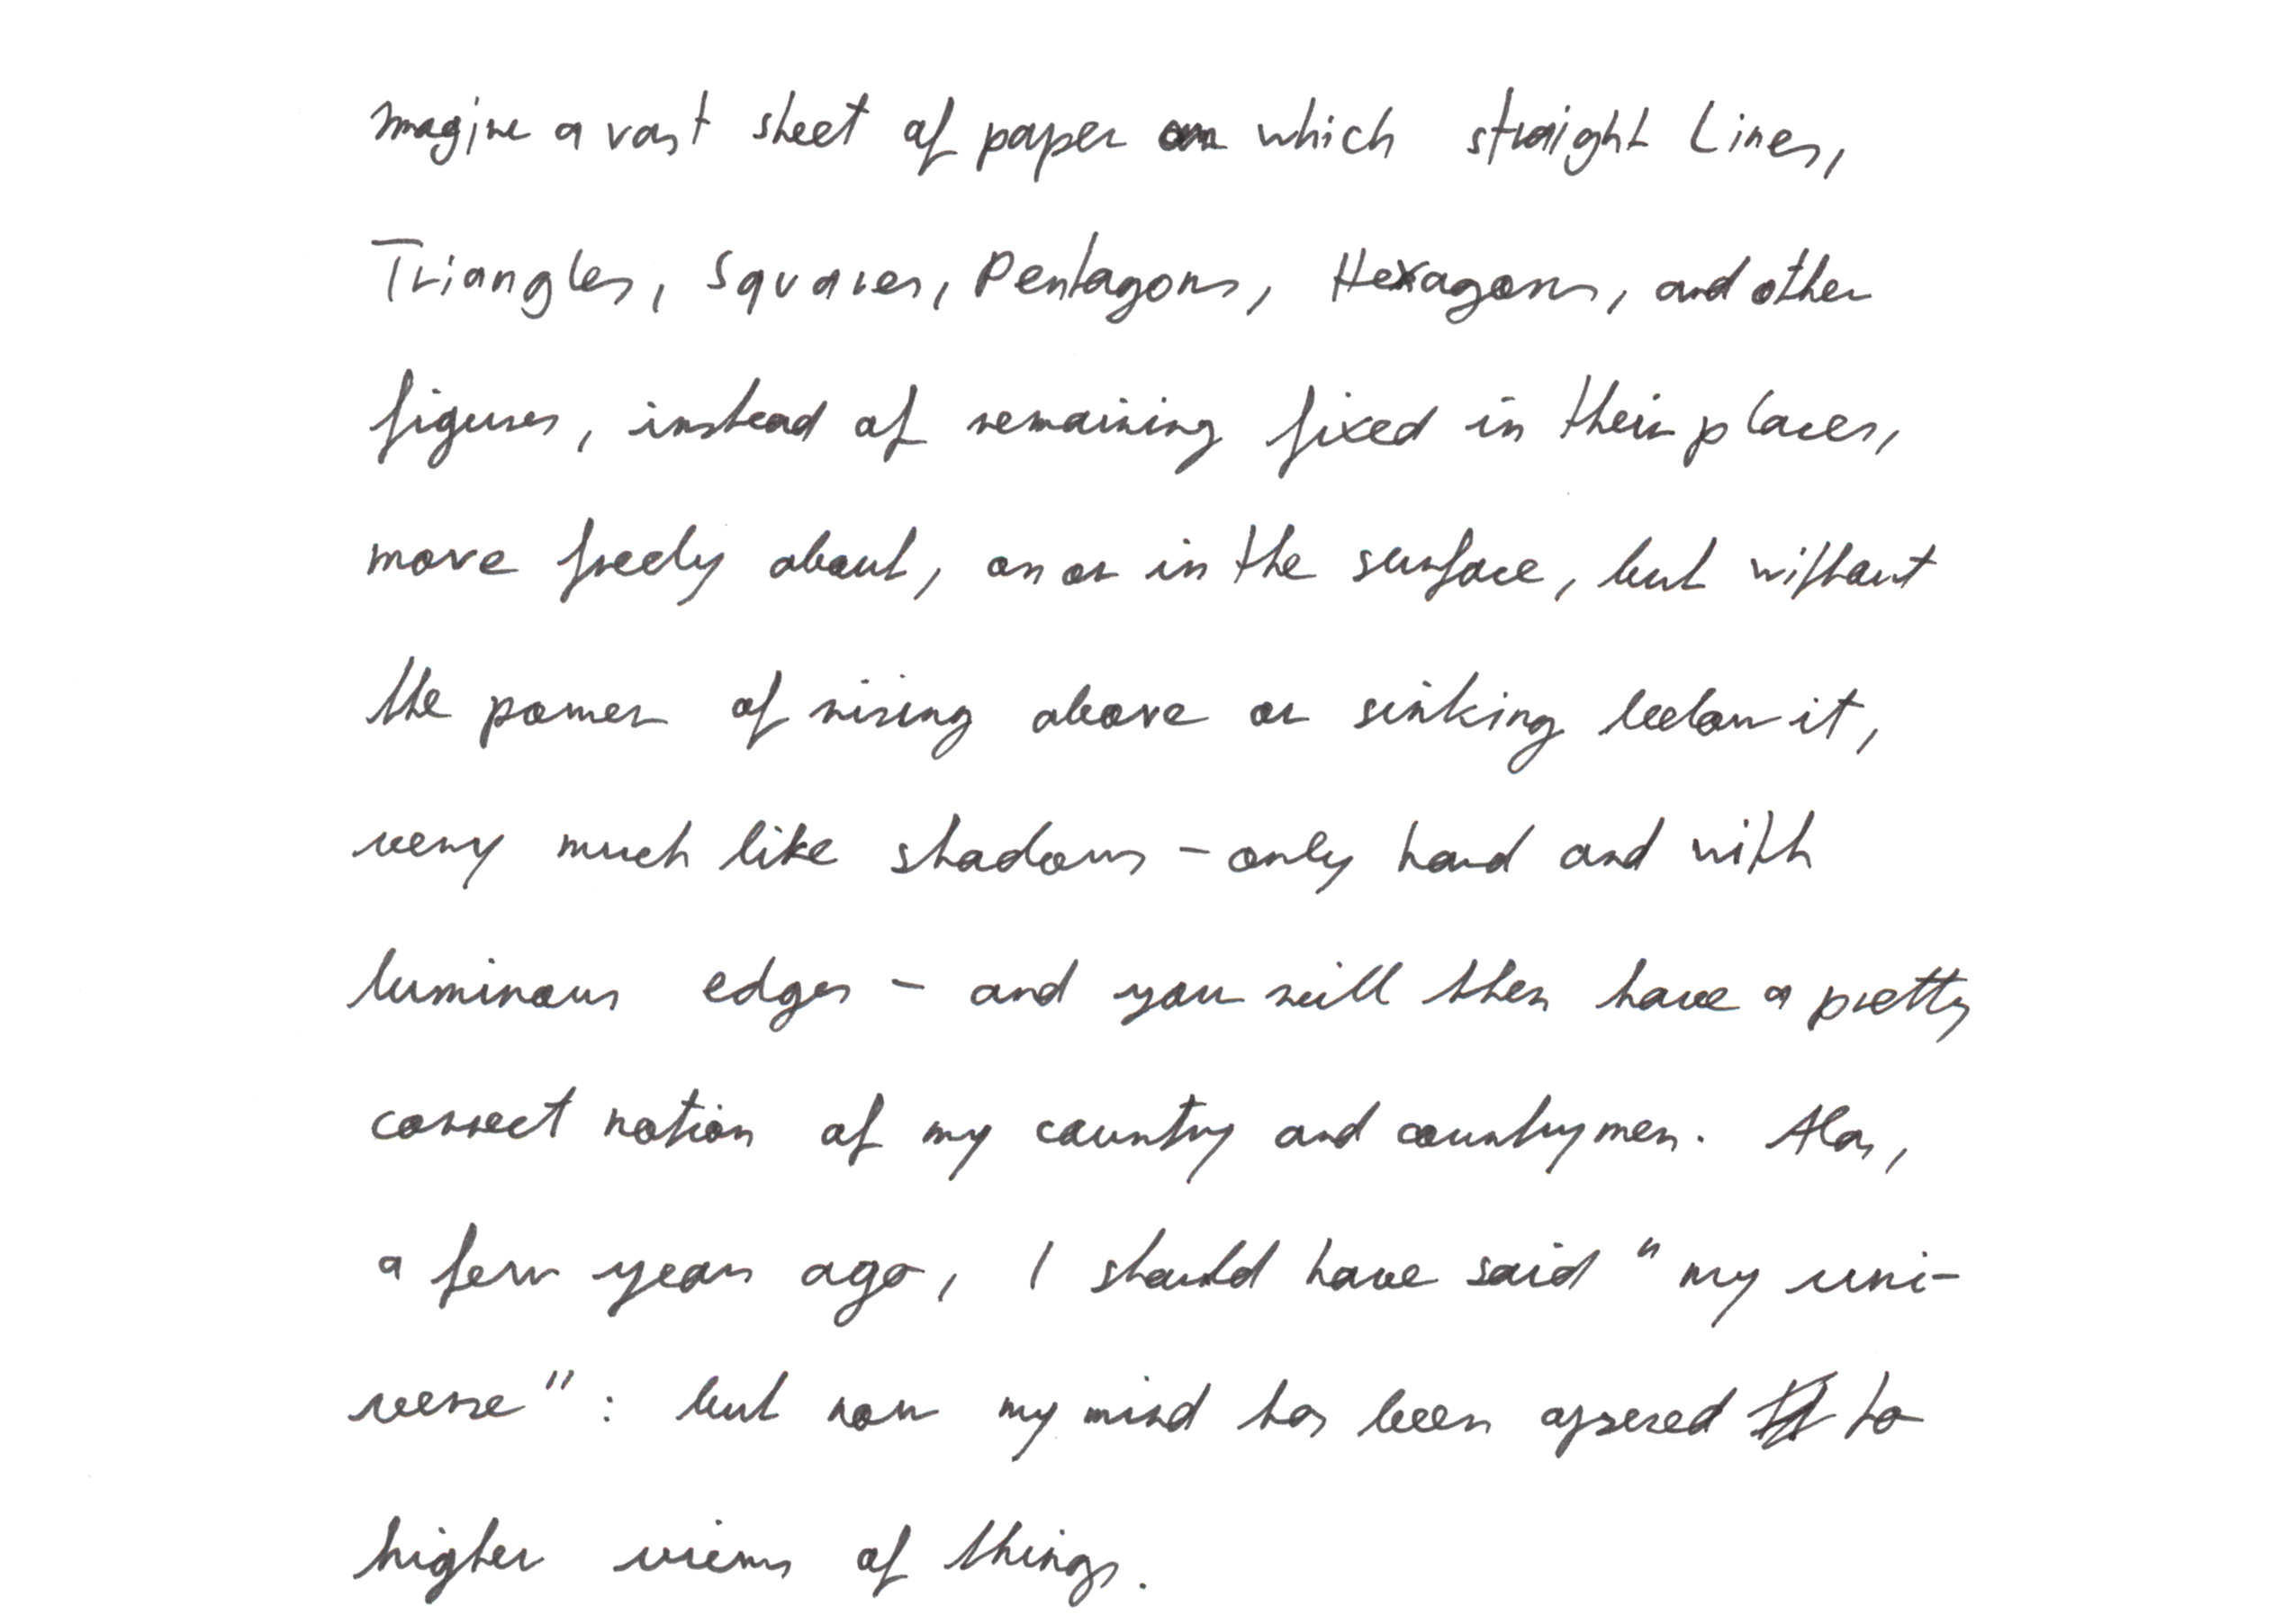 Imagine a vast sheet of paper on which straight Lines,
Triangles, Squares, Pentagons, Hexagons, and other
figures, instead of remaining fixed in their places,
move freely about, on or in the surface, but without
the power of rising above or sinking below it,
very much like shadows - only hard and with
luminous edges - and you will then have a pretty
correct notion of my country and countrymen. Alas,
a few years ago, I should have said "my uni-
verse": but now my mind has been opened to
higher views of things.